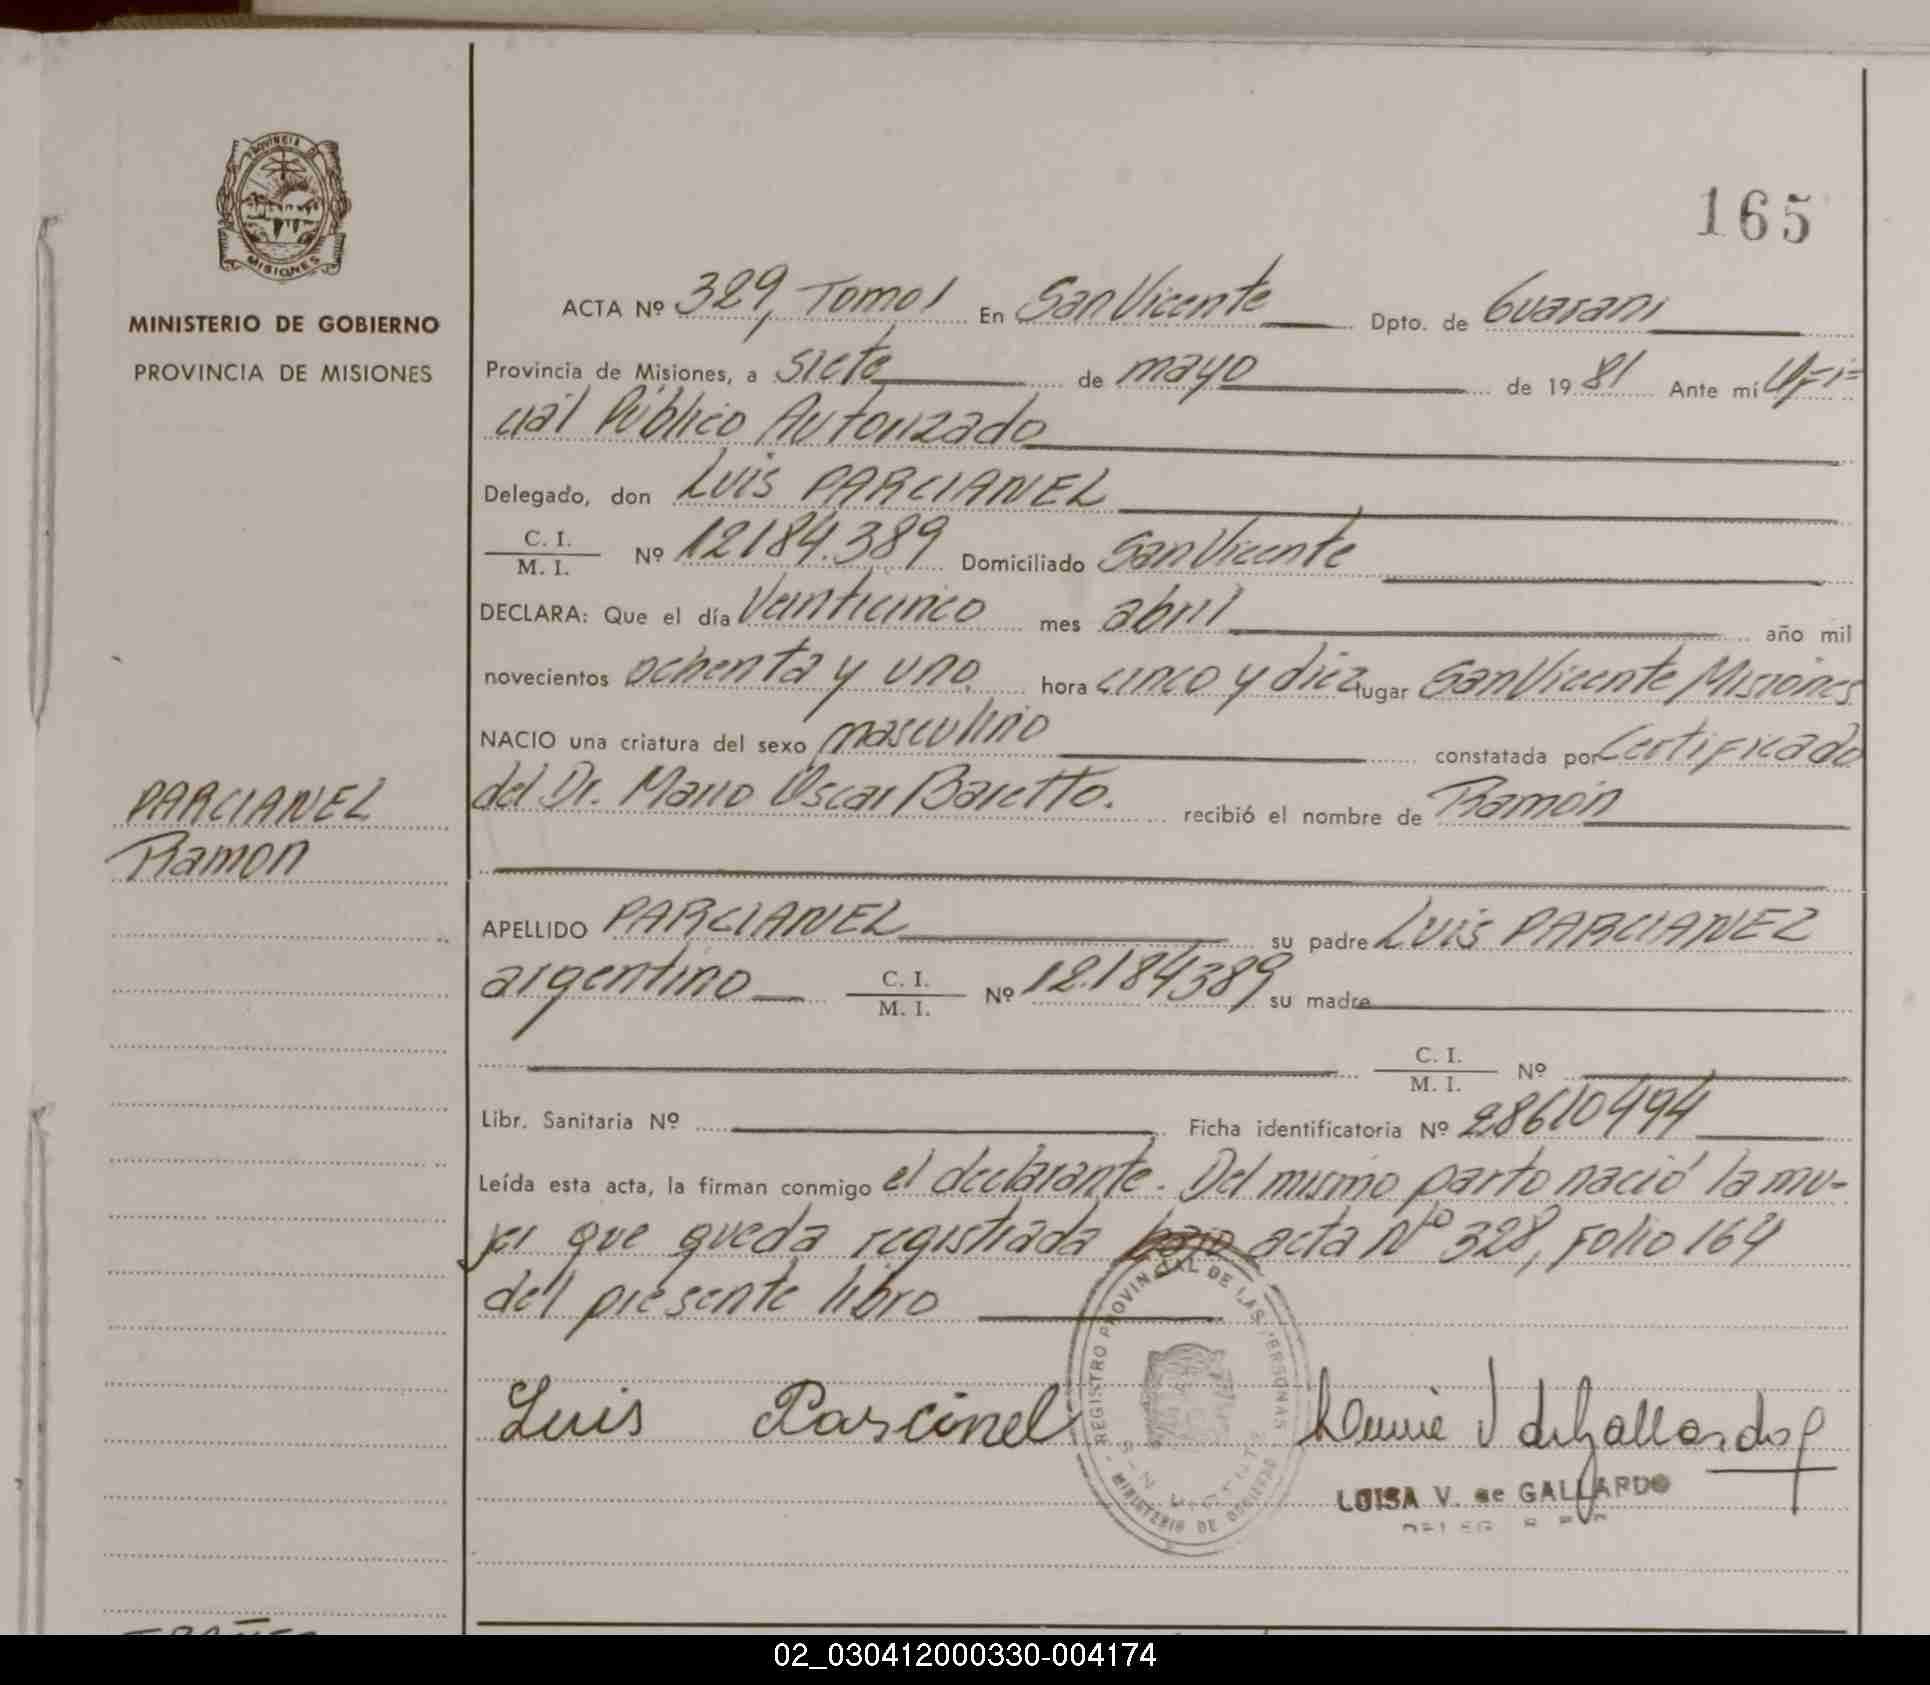 PROVINCIA DE
MISIONES
MINISTERIO DE GOBIERNO
PROVINCIA DE MISIONES
165
ACTA Nº 329, Tomo I En San Vicente Dpto. de Guaraní
Provincia de Misiones, a siete de mayo de 1981 Ante mí Ofi=
cial Público Autorizado
Delegado, don Luis PARCIANEL
C. I.
M. I. Nº 12.184.389 Domiciliado San Vicente
DECLARA: Que el día Veinticinco mes abril año mil
novecientos ochenta y uno hora cinco y diez lugar San Vicente Misiones
NACIO una criatura del sexo masculino constatada por Certificado
del Dr. Mario Oscar Baretto. recibió el nombre de Ramón
PARCIANEL
Ramon
APELLIDO PARCIANEL su padre Luis PARCIANEL
argentino C. I.
M. I. Nº 12.184389 su madre
C. I.
M. I. Nº
Libr. Sanitaria Nº Ficha identificatoria Nº 28610494
Leída esta acta, la firman conmigo el declarante. Del mismo parto nació la mu-
jer que queda registrada bajo acta Nº 328, Folio 164
del presente libro
REGISTRO PROVINCIAL DE LAS PERSONAS
MINISTERIO DE GOBIERNO
Luis Parcinel
V de Gallardo
LUISA V. de GALLARDO
02_030412000330-004174